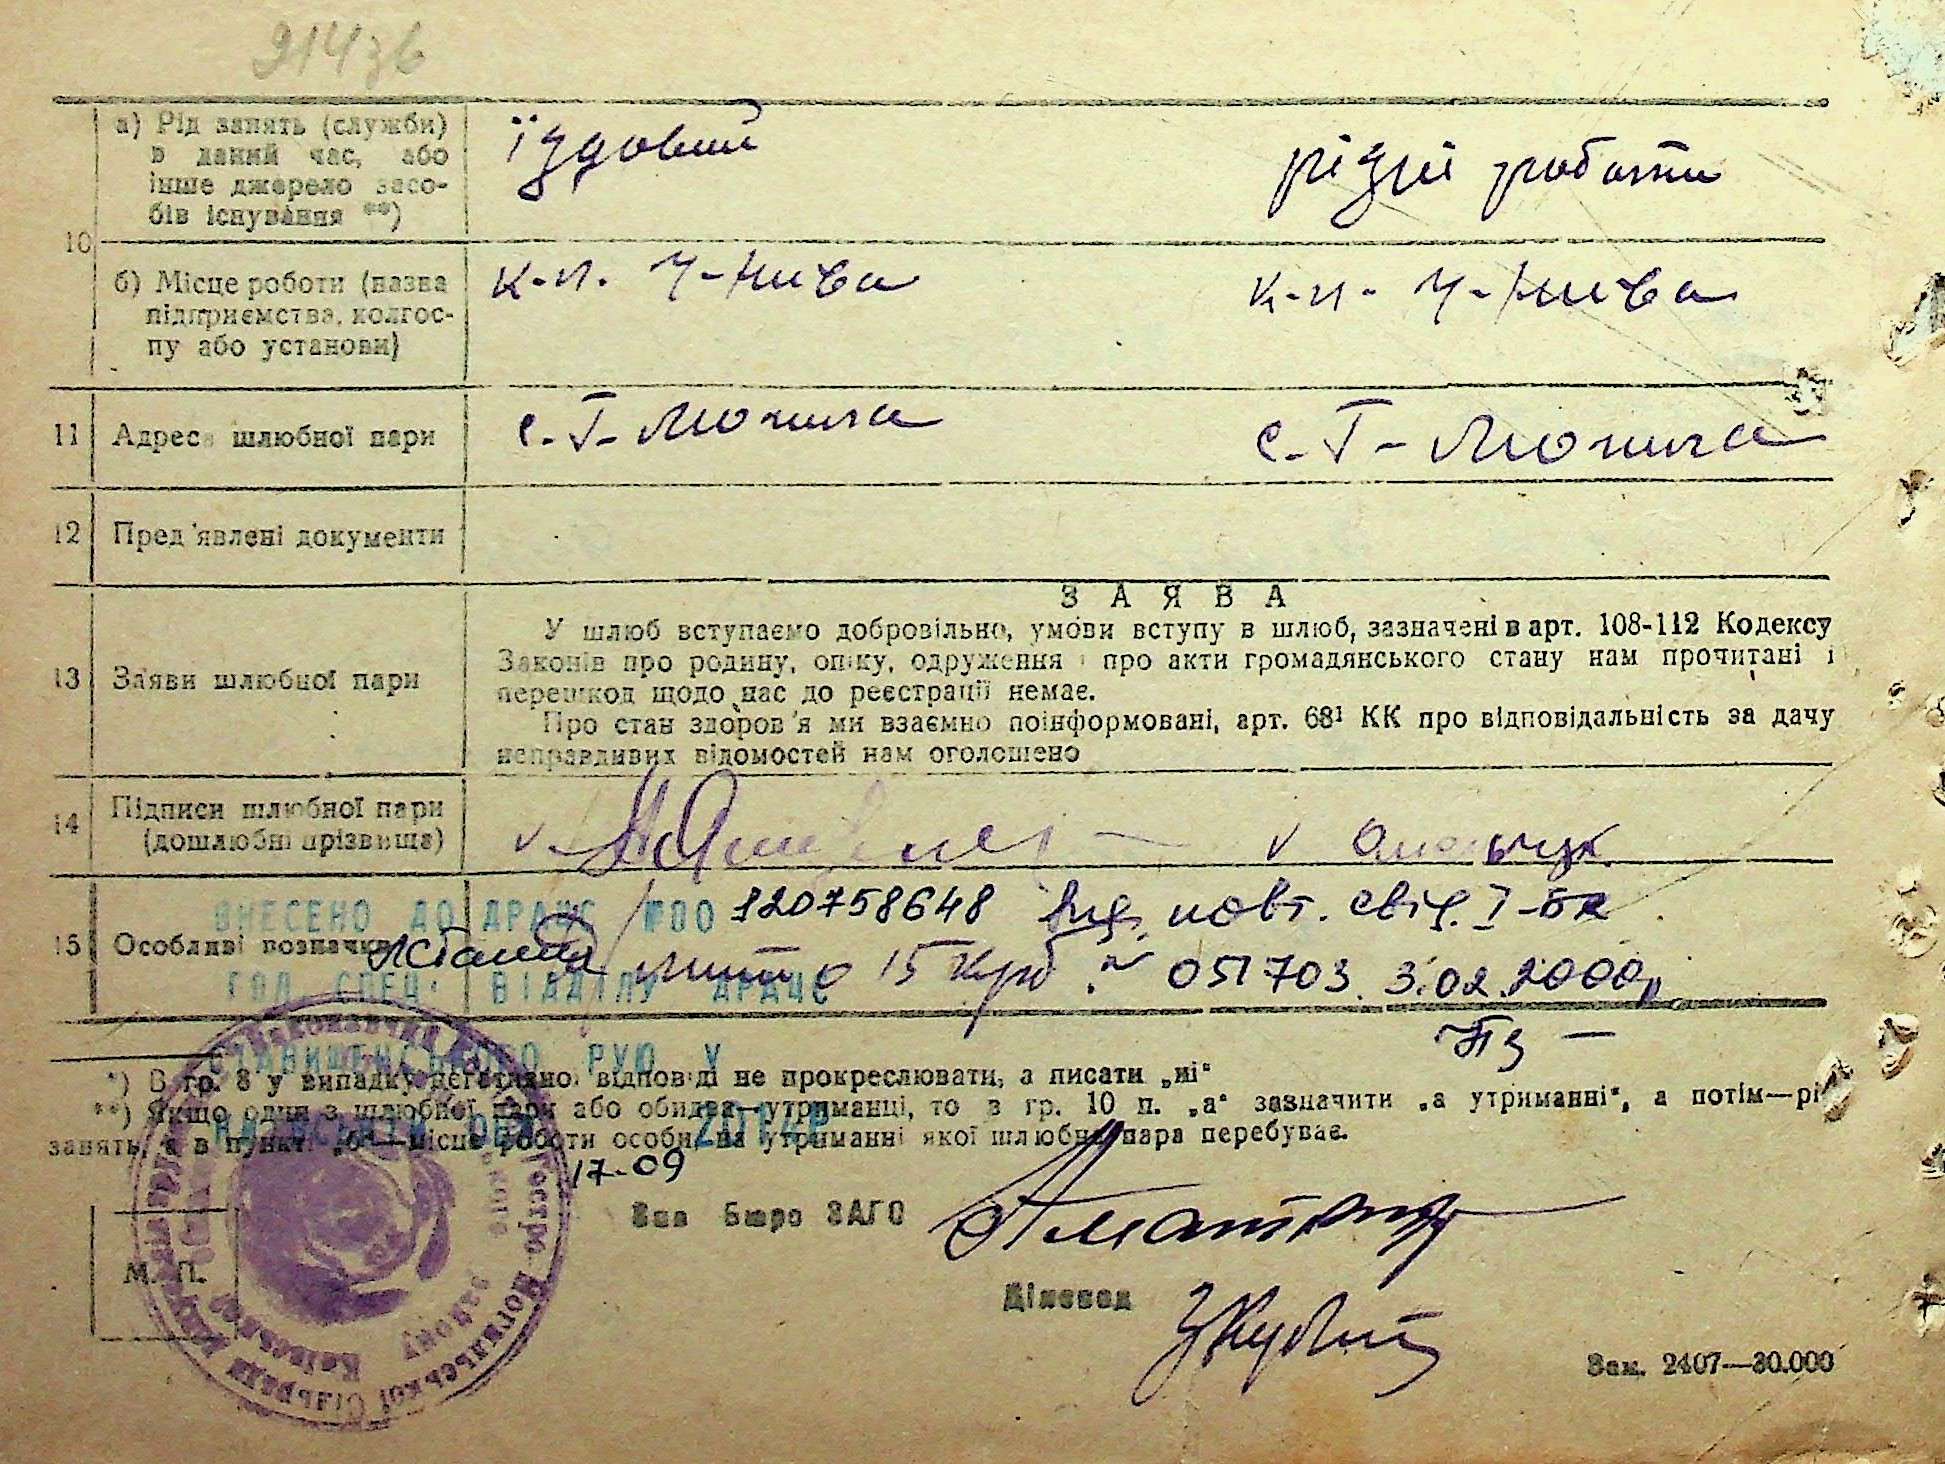 914зв
а) Рід занять (служби)
в даний час, або
інше джерело засо-
бів існування **)
їздовий
різні роботи
10
б) Місце роботи (назва
підприємства, колгос-
пу або установи)
к-п. Ч-Нива
к-п. Ч-Нива
11 Адреса шлюбної пари
с. Г-Могила
с. Г-Могила
12 Пред'явлені документи
ЗАЯВА
13 Заяви шлюбної пари
У шлюб вступаємо добровільно, умови вступу в шлюб, зазначені в арт. 108-112 Кодексу
Законів про родину, опіку, одруження і про акти громадянського стану нам прочитані і
перешкод щодо нас до реєстрації немає.
Про стан здоров'я ми взаємно поінформовані, арт. 68¹ КК про відповідальність за дачу
неправдивих відомостей нам оголошено
14 Підписи шлюбної пари
(дошлюбні прізвища)
ВНЕСЕНО ДО ДРАЦС №00 120758648 Вид. повт. свід. І-БК
15 Особливі позначки
мито 15 крб. № 051703 3.02.2000р.
ГОЛ СПЕЦ. ВІДДІЛУ ДРАЦС
СТАВИЩЕНСЬКОГО РУЮ У
*) В гр. 8 у випадку негативної відповіді не прокреслювати, а писати „ні“
**) Якщо один з шлюбної пари або обидва—утриманці, то в гр. 10 п. „а“ зазначити „а утриманні“, а потім—рі
КИЇВСЬКІЙ ОБЛ. 2014р
занять, а в пункті „б“—місце роботи особи, на утриманні якої шлюбна пара перебуває.
17-09
Зав Бюро ЗАГС
М. П.
Діловод
Зам. 2407—30.000